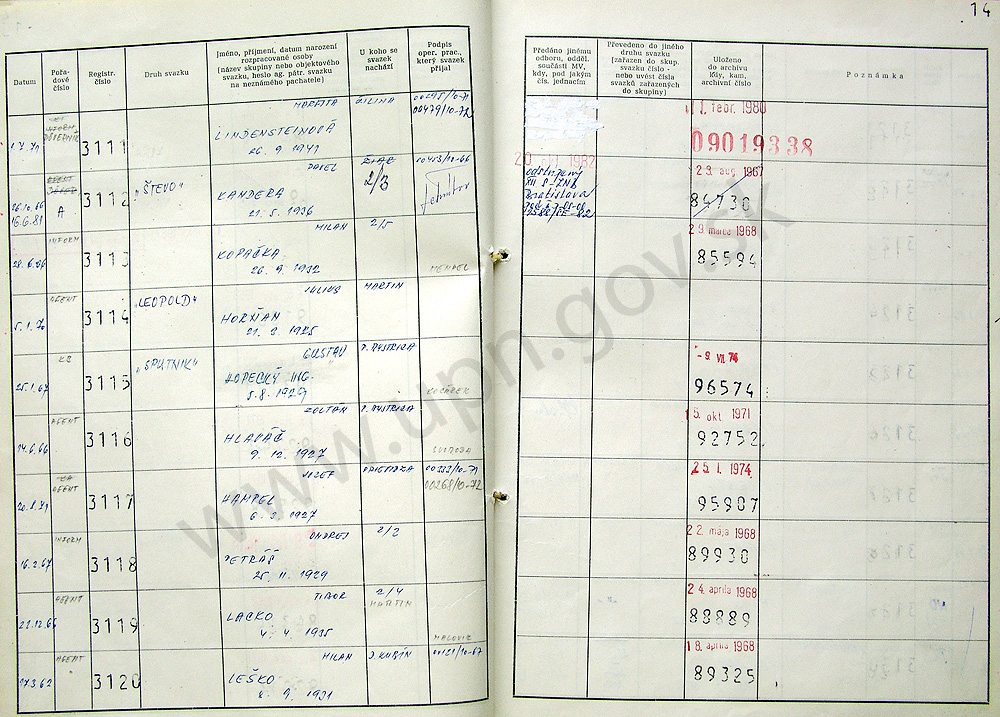 14
Datum
Pořa-
dové
číslo
Registr.
číslo
Druh svazku
Jméno, příjmení, datum narození
rozpracované osoby
(název skupiny nebo objektového
svazku, heslo ag. pátr. svazku
na neznámého pachatele)
U koho se
svazek
nachází
Podpis
oper. prac.,
který svazek
přijal
Předáno jinému
odboru, odděl.
součásti MV,
kdy, pod jakým
čís. jednacím
Převedeno do jiného
druhu svazku
(zařazen do skup.
svazku číslo -
nebo uvést čísla
svazků zařazených
do skupiny)
Uloženo
do archivu
kdy, kam,
archivní číslo
Poznámka
3111
LINDENSTEINOVÁ
26. 9. 1941
ŽILINA
00479/10-72
1. febr. 1980
09019338
26.10.66
16.6.81
A
3112
"ŠTEVO"
PAVEL
KANDERA
21. 5. 1936
2/3
00413/10-66
1982
odstúpený
XII S-ZNB
Bratislava
23. aug. 1967
84730
INFORM
3113
MILAN
KOPAČKA
26. 9. 1932
2/5
29. marca 1968
85594
AGENT
5.1.70
3114
"LEOPOLD"
JULIUS
HORŇAN
21. 2. 1925
MARTIN
KS
25.1.67
3115
"SPUTNIK"
GUSTÁV
KOPECKÝ ING.
5. 8. 1929
B. BYSTRICA
- 9. VII. 74
96574
AGENT
14.6.66
3116
ZOLTÁN
HLAVÁČ
9. 12. 1927
B. BYSTRICA
SVOBODA
15. okt. 1971
92752
AGENT
3117
JOZEF
HAMPEL
6. 3. 1927
PRIEVIDZA
00268/10-72
25. I. 1974
95907
INFORM
16.2.67
3118
ONDREJ
PETRÁŠ
25. 11. 1929
2/2
22. mája 1968
89930
AGENT
3119
TIBOR
LACKO
4. 4. 1935
2/4
MARTIN
24. apríla 1968
88889
AGENT
3120
MILAN
LEŠKO
2. 9. 1931
D. KUBÍN
00121/10-67
18. apríla 1968
89325
www.upn.gov.sk